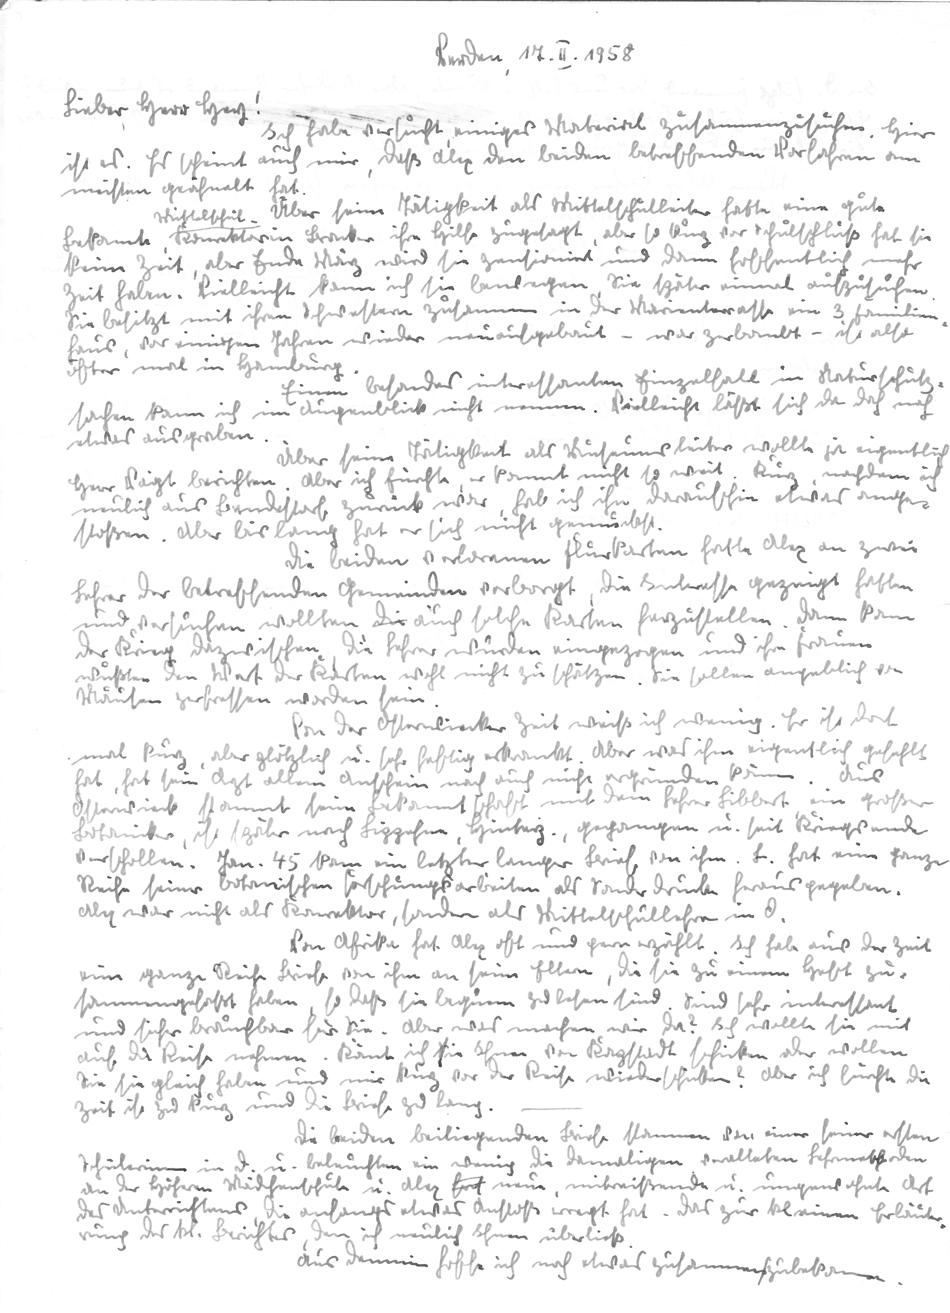 Verden, 17. II. 1958
Lieber Herr Hey!
Ich habe versucht, einiges Material zusammenzusuchen. Hier
ist es. Es scheint auch mir, daß Alex den beiden betreffenden Vorfahren am
meisten geähnelt hat.
Über seine Tätigkeit als Mittelschulleiter hatte eine gute
Mittelschul-
Bekannte, Konrektorin ihre Hilfe zugesagt, aber so kurz vor Schulschluß hat sie
keine Zeit, aber Ende März wird sie pensioniert und dann hoffentlich mehr
Zeit haben. Vielleicht kann ich sie bewegen, Sie später einmal aufzusuchen.
Sie besitzt mit ihren Schwestern zusammen in der Marienterrasse ein 3 Familien-
haus, vor einigen Jahren wieder neuaufgebaut – war zerbombt – ist also
öfter mal in Hamburg.
Einen besonders interessanten Einzelfall in Naturschutz-
sachen kann ich im Augenblick nicht nennen. Vielleicht läßt sich da doch noch
etwas ausgraben.
Über seine Tätigkeit als Museumsleiter wollte ja eigentlich
Herr Voigt berichten. Aber ich fürchte, er kommt nicht so weit. Kurz, nachdem ich
neulich aus Bendestorf zurück war, hab ich ihn daraufhin etwas ange-
stoßen. Aber bislang hat er sich nicht gemuckst.
Die beiden verlorenen Flurkarten hatte Alex an zwei
Lehrer der betreffenden Gemeinden verborgt, die Interesse gezeigt hatten
und versuchen wollten auch solche Karten herzustellen. Dann kam
der Krieg dazwischen, die Lehrer wurden eingezogen und ihre Frauen
wußten den Wert der Karten wohl nicht zu schätzen. Sie sollen angeblich von
Mäusen zerfressen worden sein.
Von der Osterwiecker Zeit weiß ich wenig. Er ist dort
mal kurz, aber plötzlich u. sehr heftig erkrankt. Aber was ihm eigentlich gefehlt
hat, hat sein Arzt allem Anschein nach auch nicht ergründen können. Aus
Osterwieck stammt seine Bekanntschaft mit dem Lehrer Libbert, ein großer
Botaniker, ist später nach Lippehne, gegangen u. seit Kriegsende
verschollen. Jan. 45 kam ein letzter langer Brief von ihm. L. hat eine ganze
Reihe seiner botanischen Forschungsarbeiten als Sonderdrucke herausgegeben.
Alex war nicht als Konrektor, sondern als Mittelschullehrer in O.
Von Afrika hat Alex oft und gern erzählt. Ich habe aus der Zeit
eine ganze Reihe Briefe von ihm an seine Eltern, die sie zu einem Heft zu-
sammengeheftet haben, so daß sie bequem zu lesen sind. Sind sehr interessant
und sicher brauchbar für Sie. Aber was machen wir da? Ich wollte sie mit
auf die Reise nehmen. Könnte ich sie Ihnen von Kapstadt schicken oder wollen
Sie sie gleich haben und mir kurz vor der Reise wiederschicken? Aber ich fürchte die
Zeit ist zu kurz und die Briefe zu lang.
Die beiden beiliegenden Briefe stammen von einer seiner ersten
Schülerinnen in O. u. beleuchten ein wenig die damaligen veralteten Lehrmethoden
an der Höheren Mädchenschule u. Alex neue, mitreißende u. ungewohnte Art
des Unterrichtens, die anfangs etwas Anstoß erregt hat. Das zur kleinen Erläute-
rung des kl. Berichtes, den ich neulich Ihnen überließ.
Aus Demmin hoffe ich noch etwas zusammenzubekommen.